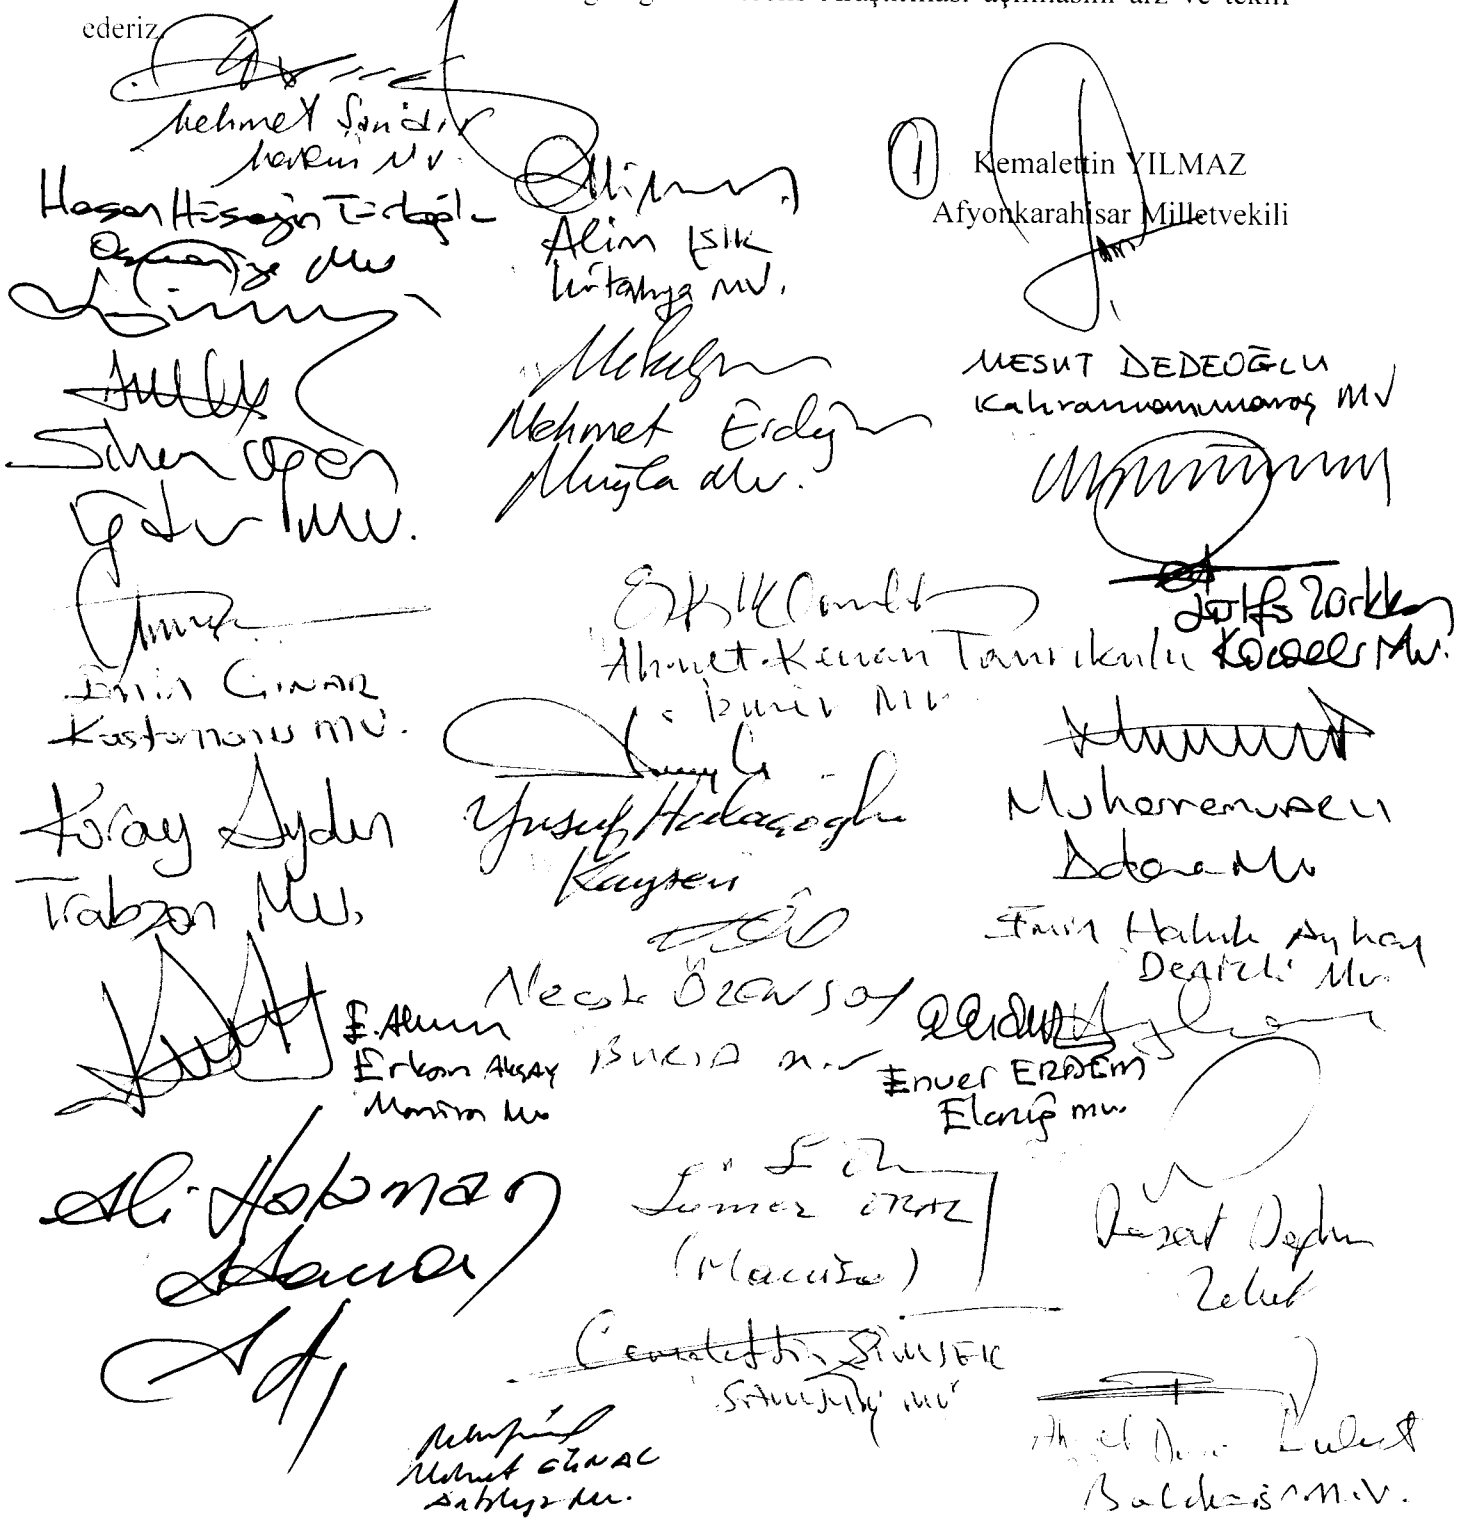 açılmasını arz ve teklif
ederiz.
Mehmet Şandır
Mersin MV.
Hasan Hüseyin Türkoğlu
Osmaniye MV
Alim IŞIK
Kütahya MV.
1
Kemalettin YILMAZ
Afyonkarahisar Milletvekili
Sinan Oğan
Iğdır MV.
Mehmet Erdoğan
Muğla MV.
MESUT DEDEOĞLU
Kahramanmaraş MV
Emin ÇINAR
Kastamonu MV.
Ahmet Kenan Tanrıkulu
İzmir MV
Lütfü Türkkan
Kocaeli MV.
Koray Aydın
Trabzon MV.
Yusuf Halaçoğlu
Kayseri
Muharrem VARLI
Adana MV
Necati ÖZENSOY
BURSA M.V
Emin Haluk Ayhan
Denizli MV.
E. Akçay
Erkan AKÇAY
Manisa MV.
Enver ERDEM
Elazığ MV.
Ali Halaman
Adana
Sümer ORAL
(Manisa)
Reşat Doğru
Tokat
Cemalettin ŞİMŞEK
SAMSUN MV
Mehmet GÜNAL
Antalya MV.
Ahmet Duran Bulut
Balıkesir M.V.